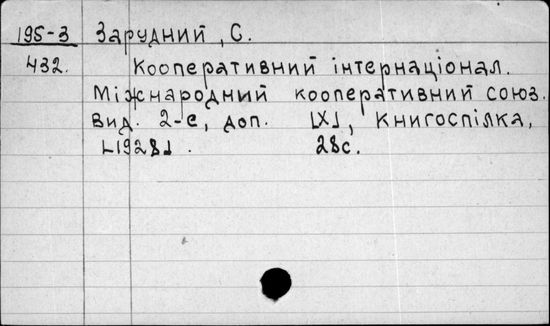 195-3 Зарудний, С.
432. Кооперативний інтернаціонал.
Міжнародний кооперативний союз.
Вид. 2-е, доп. [Х], Книгоспілка,
[1928]. 28с.